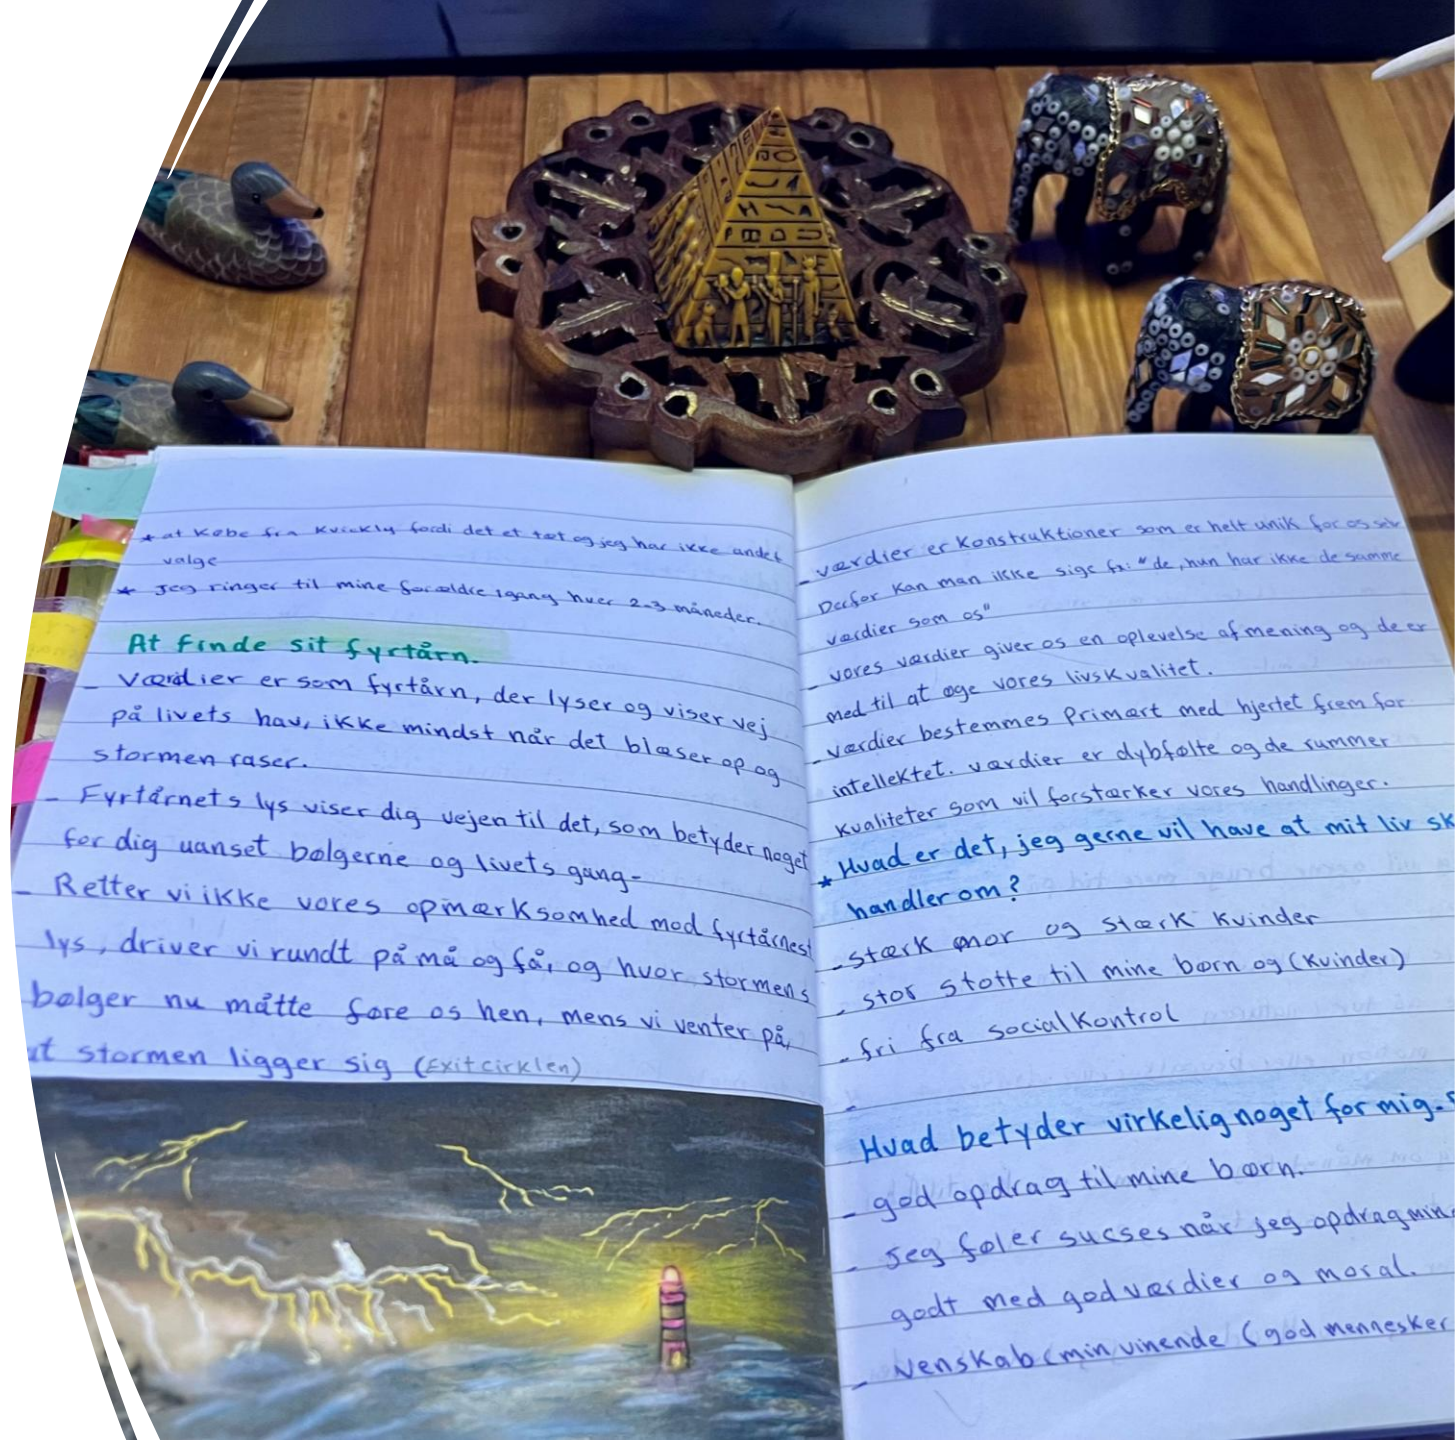 * at Købe fra Kvickly fordi det et tæt og jeg har ikke andet
valge
* Jeg ringer til mine forældre igang hver 2-3 måneder.
At finde sit fyrtårn.
- Værdier er som fyrtårn, der lyser og viser vej
på livets hav, ikke mindst når det blæser op og
stormen raser.
- Fyrtårnets lys viser dig vejen til det, som betyder noget
for dig uanset bølgerne og livets gang-
- Retter vi ikke vores opmærksomhed mod fyrtårnest
lys, driver vi rundt på må og få, og hvor stormens
bølger nu måtte føre os hen, mens vi venter på,
at stormen ligger sig (Exitcirklen)
- værdier er Konstruktioner som er helt unik for os selv
Derfor Kan man ikke sige "de, hun har ikke de samme
værdier som os"
- vores værdier giver os en oplevelse af mening og de er
med til at øge vores livskvalitet.
- værdier bestemmes Primært med hjertet frem for
intellektet. værdier er dybfølte og de rummer
Kvaliteter som vil forstærker vores handlinger.
* Hvad er det, jeg gerne vil have at mit liv sk
handler om?
- stærk mor og stærk Kvinder
- stor støtte til mine børn og (Kvinder)
- fri fra socialkontrol
-
Hvad betyder virkelig noget for mig-
- god opdrag til mine børn.
- Jeg føler sucses når jeg opdrag min
godt med god værdier og moral.
- Venskab (min vinende (god mennesker